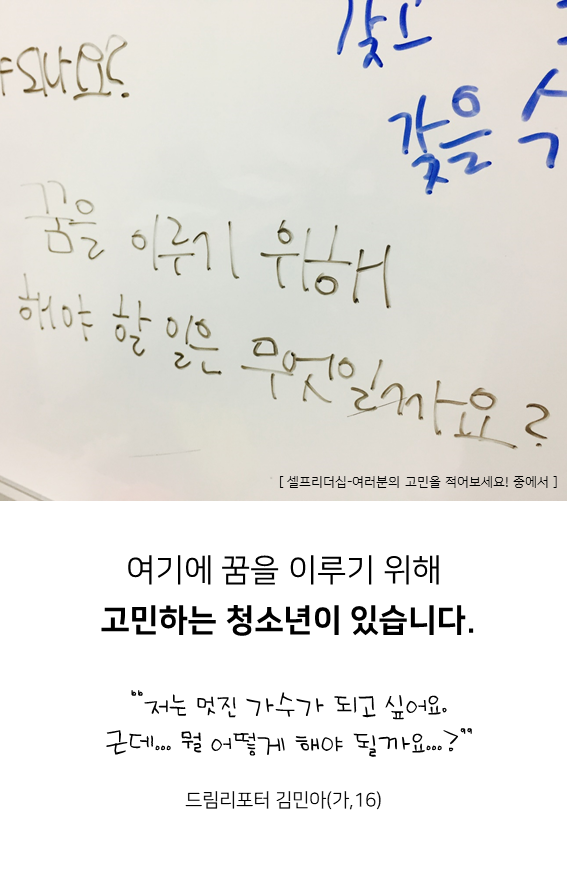 갖고
되나요?
갖을 수
꿈을 이루기 위해
해야 할 일은 무엇일까요?
[ 셀프리더십-여러분의 고민을 적어보세요! 중에서 ]
여기에 꿈을 이루기 위해
고민하는 청소년이 있습니다.
“저는 멋진 가수가 되고 싶어요.
근데... 뭘 어떻게 해야 될까요...?”
드림리포터 김민아(가,16)